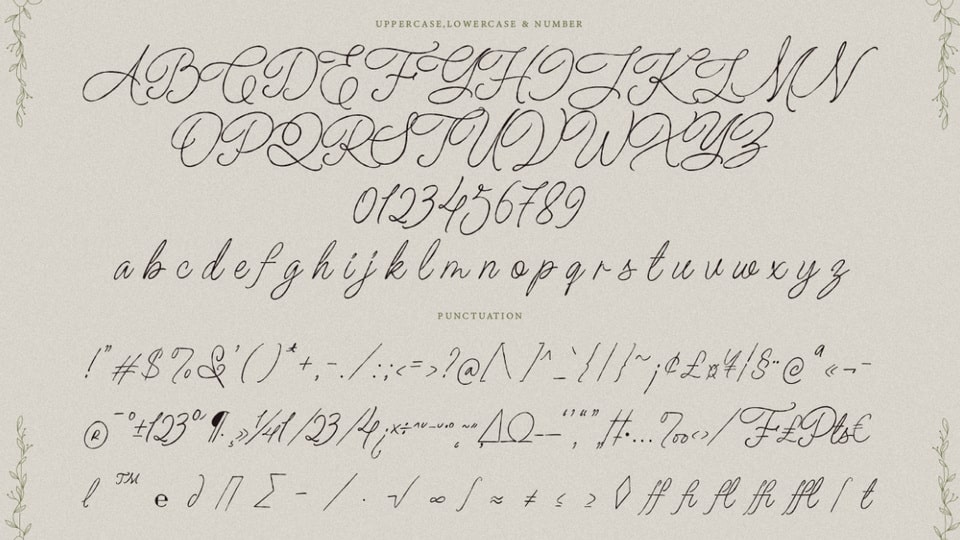 UPPERCASE,LOWERCASE & NUMBER
ABCDEFGHIJKLMN
OPQRSTUVWXYZ
0123456789
a b c d e f g h i j k l m n o p q r s t u v w x y z
PUNCTUATION
! " # $ % & ' ( ) * + , - . / : ; < = > ? @ [ \ ] ^ _ ` { | } ~ ¡ ¢ £ ¤ ¥ ¦ § ¨ © ª « ¬ -
® ¯ ° ± 1 2 3 º ¶ · ¸ » 1/4 1/2 3/4 ¿ × ÷ Δ Ω – — ‘ ’ “ ” „ • … ‰ ‹ › / ₣ ₤ ₧ €
ℓ ™ ℮ ∂ ∏ ∑ − ∕ ∙ √ ∞ ∫ ≈ ≠ ≤ ≥ ◊ ff fi fl ffi ffl ſ t